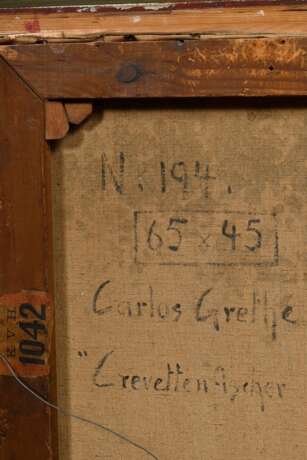 N. 194.
65 x 45
Carlos Grethe
"Crevettenfischer
EVH
1042